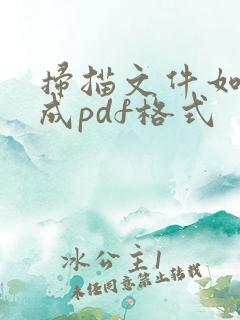 掃描文件如
成pdf格式
冰公主1
未经同意禁止转载